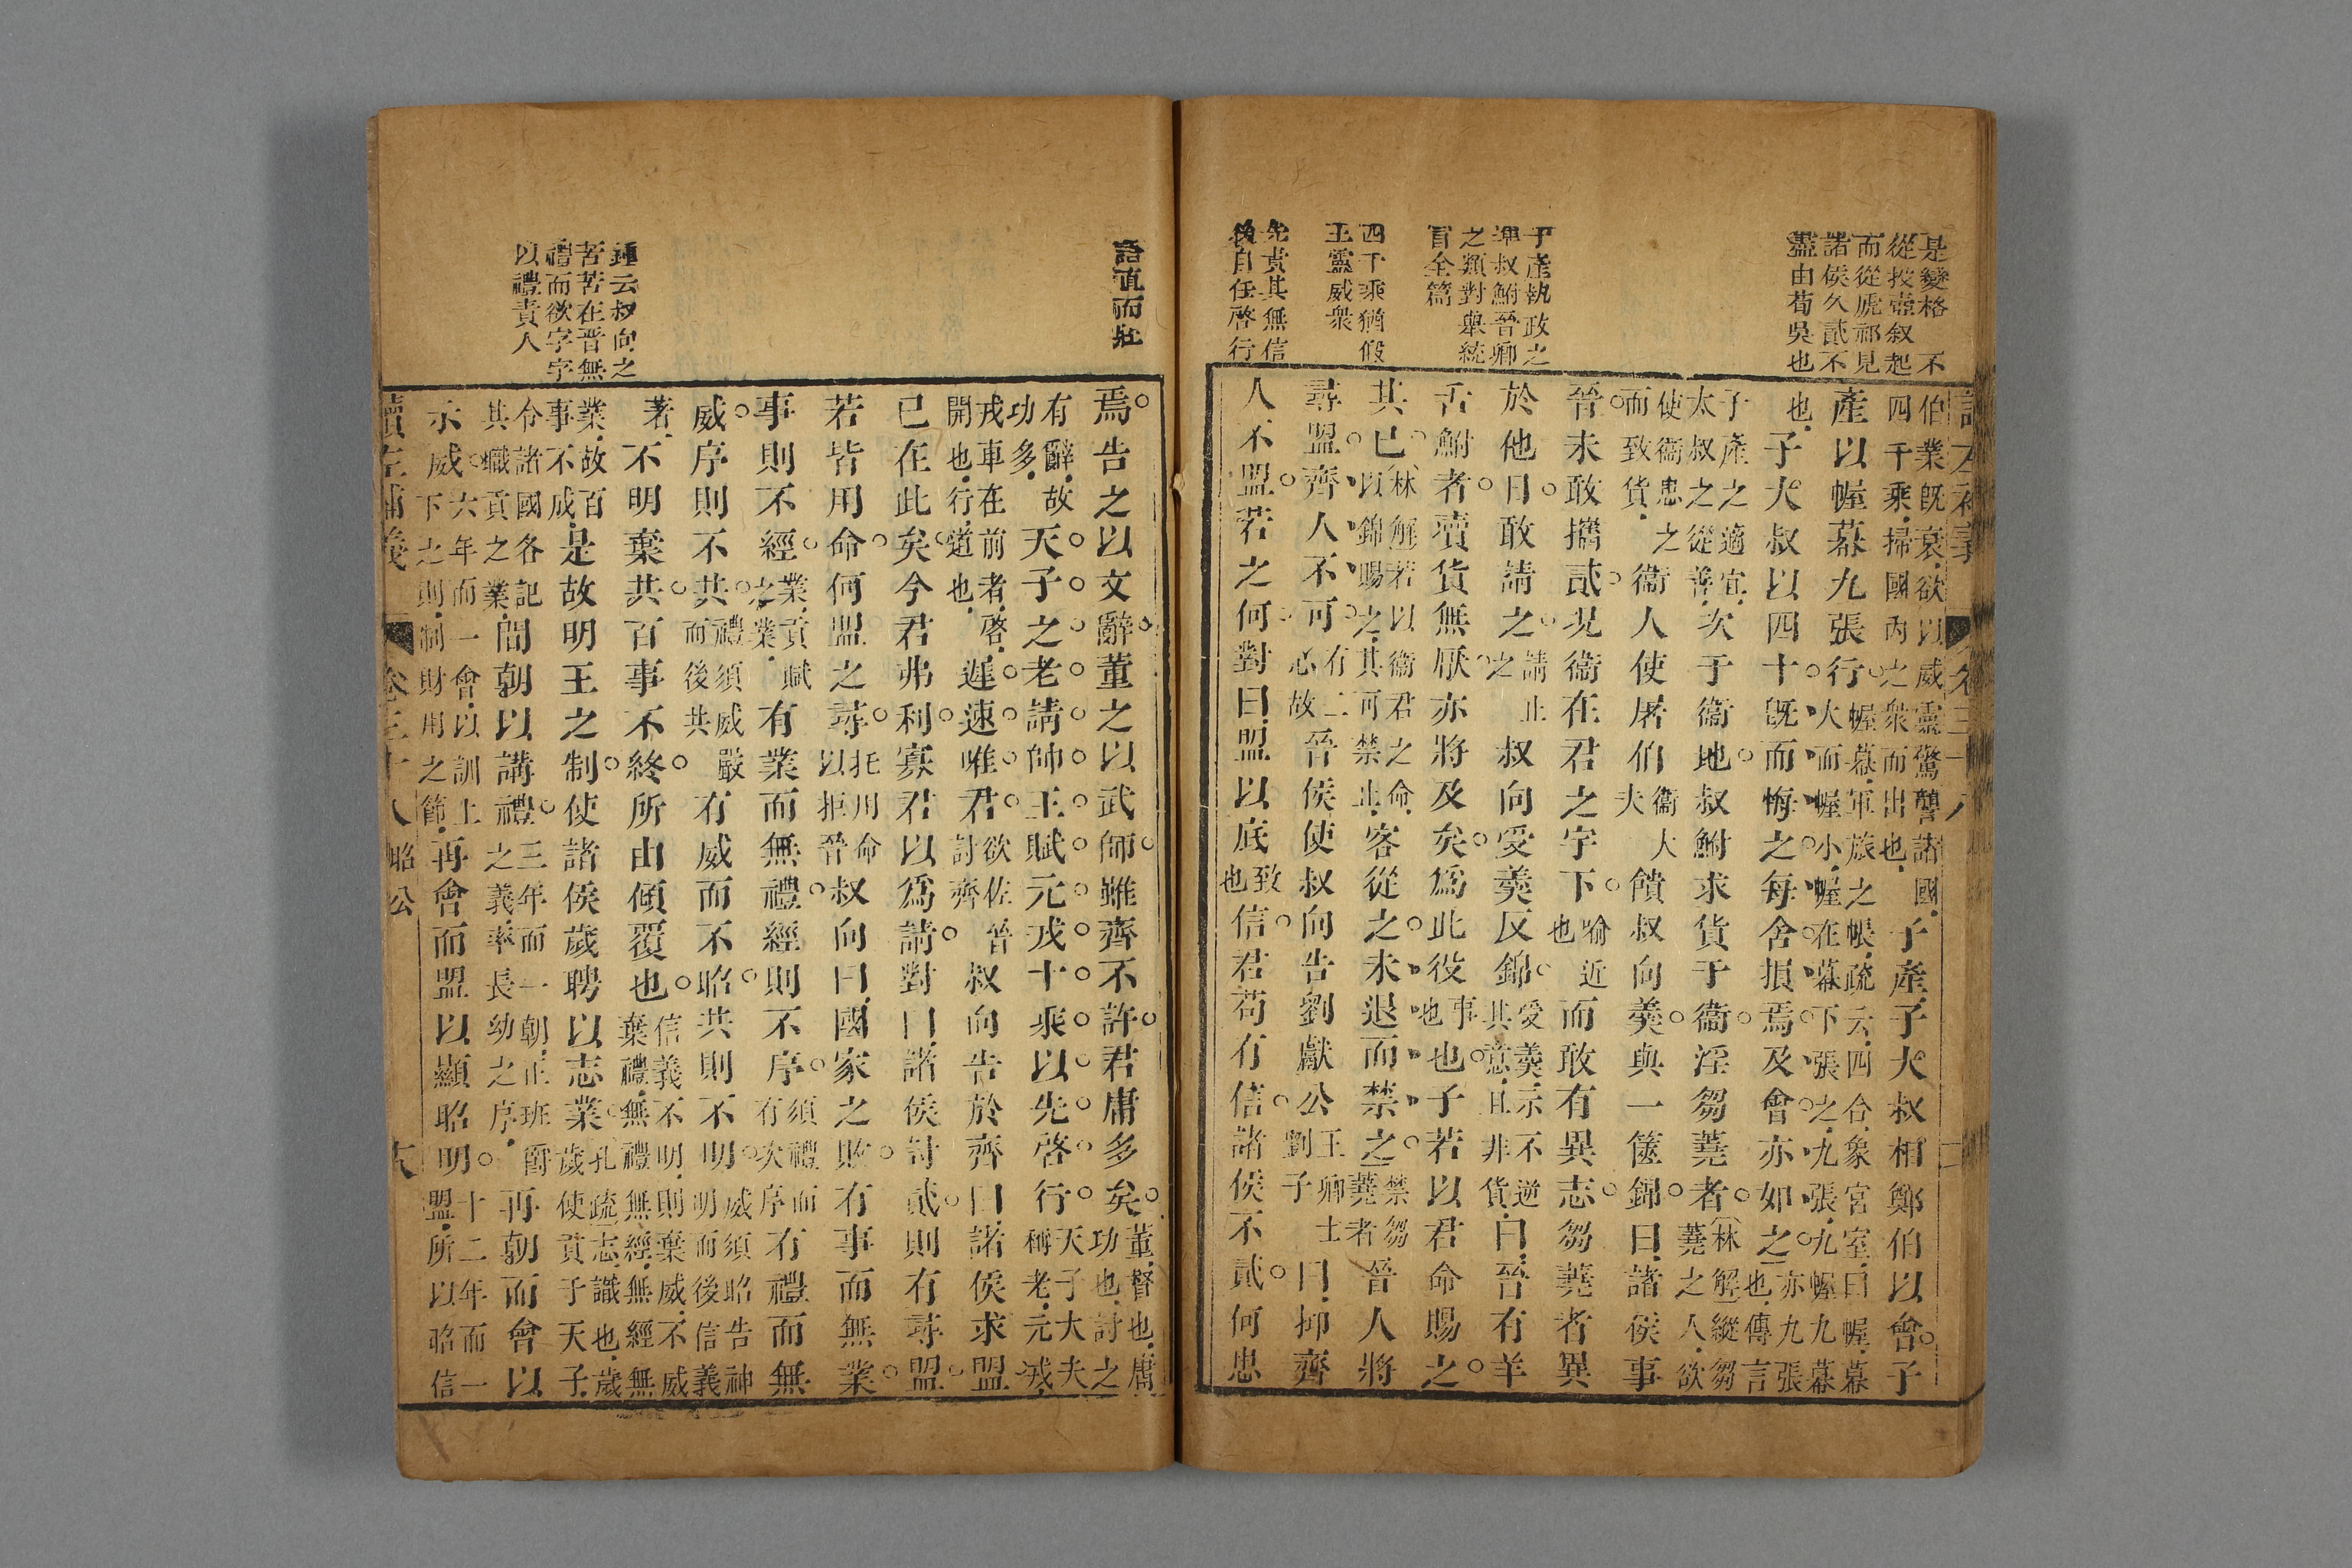 是變格不
從投壺叙起
而從虒祁見
諸侯久貳不
盡由荀吳也
子產執政之
渾叔鮒晉卿
之類對舉統
冒全篇
四千乘猶假
王靈威衆
先責其無信
後自任啓行
伯業既衰欲以威靈驚讋諸國
四千乘掃國内之衆而出也
子產子大叔相鄭伯以會子
產以幄幕九張行
幄幕軍旅之帳疏云四合象宮室曰幄幕
大而幄小幄在幕下張之九張九幄九幕
亦九張
也傳言
也子大叔以四十既而悔之每舍損焉及會亦如之
子產之適宜
太叔之從善
次于衛地叔鮒求貨于衛淫芻蕘者
林解縱芻
蕘之人欲
使衛患之
而致貨
衛人使屠伯
衛大
夫
饋叔向羹與一篋錦曰諸侯事
晉未敢攜貳况衛在君之宇下
喻近
也
而敢有異志芻蕘者異
於他日敢請之
請止
之
叔向受羹反錦
受羹示不逆
其意且非貨
曰晉有羊
舌鮒者瀆貨無厭亦將及矣爲此役
事
也
也子若以君命賜之
其已
林解若以衛君之命
以錦賜之其可禁止
客從之未退而禁之
禁芻
蕘者
晉人將
尋盟齊人不可
有二
心故
晉侯使叔向告劉獻公
王卿士
劉子
曰抑齊
人不盟若之何對曰盟以底
致
也
信君苟有信諸侯不貳何患
語直而壯
鍾云叔向之
苦苦在晋無
禮而欲字字
以禮責人
焉告之以文辭董之以武師雖齊不許君庸多矣
董督也庸
功也討之
有辭故
功多
天子之老請帥王賦元戎十乘以先啓行
天子大夫
稱老元戎
戎車在前者啓
開也行道也
遲速唯君
欲佐晉
討齊
叔向告於齊曰諸侯求盟
已在此矣今君弗利寡君以爲請對曰諸侯討貳則有尋盟
若皆用命何盟之尋
托用命
以拒晉
叔向曰國家之敗有事而無業
事則不經
業貢賦
之業
有業而無禮經則不序
須禮而
有次序
有禮而無
威序則不共
禮須威嚴
而後共
有威而不昭共則不明
威須昭告神
明而後信義
著
不明棄共百事不終所由傾覆也
信義不明則棄威不威
棄禮無禮無經無經無
業故百
事不成
是故明王之制使諸侯歲聘以志業
孔疏志識也歲
歲使貢于天子
令諸國各記
其職貢之業
間朝以講禮
三年而一朝正班爵
之義率長幼之序
再朝而會以
示威
六年而一會以訓上
下之則制財用之節
再會而盟以顯昭明
十二年而一
盟所以昭信
讀左補義
卷三十八
昭公